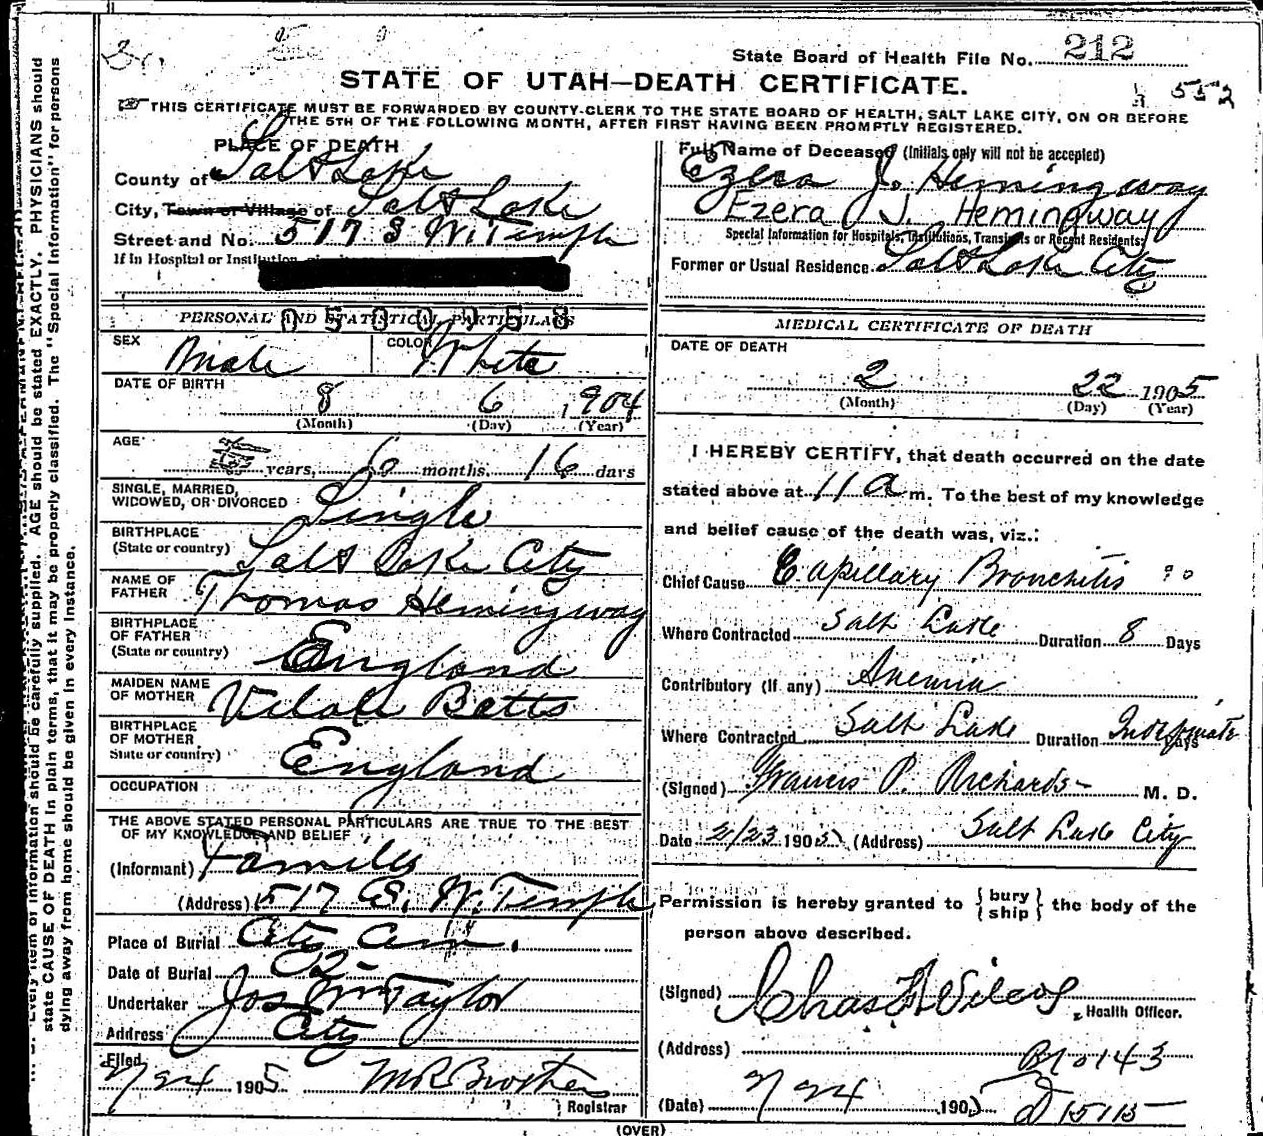 State Board of Health File No. 212
STATE OF UTAH—DEATH CERTIFICATE.
552
THIS CERTIFICATE MUST BE FORWARDED BY COUNTY-CLERK TO THE STATE BOARD OF HEALTH, SALT LAKE CITY, ON OR BEFORE
THE 5TH OF THE FOLLOWING MONTH, AFTER FIRST HAVING BEEN PROMPTLY REGISTERED.
PLACE OF DEATH
County of Salt Lake
City, Town or Village of Salt Lake
Street and No. 517 S W. Temple
If in Hospital or Institution
PERSONAL AND STATISTICAL PARTICULARS
SEX Male COLOR White
DATE OF BIRTH
8 6 1904
(Month) (Day) (Year)
AGE
years, 6 months, 16 days
SINGLE, MARRIED,
WIDOWED, OR DIVORCED Single
BIRTHPLACE
(State or country) Salt Lake City
NAME OF
FATHER Thomas Hemingway
BIRTHPLACE
OF FATHER
(State or country) England
MAIDEN NAME
OF MOTHER Betts
BIRTHPLACE
OF MOTHER
State or country) England
OCCUPATION
THE ABOVE STATED PERSONAL PARTICULARS ARE TRUE TO THE BEST
OF MY KNOWLEDGE AND BELIEF
(Informant) Family
(Address) 517 S. W. Temple
Place of Burial City Cem.
Date of Burial
Undertaker Jos Wm Taylor
Address City
Filed
2/24 1905 Registrar
Full Name of Deceased (Initials only will not be accepted)
Ezera J. Hemingway
Ezera J. Hemingway
Special Information for Hospitals, Institutions, Transients or Recent Residents:
Former or Usual Residence Salt Lake City
MEDICAL CERTIFICATE OF DEATH
DATE OF DEATH
2 22 1905
(Month) (Day) (Year)
I HEREBY CERTIFY, that death occurred on the date
stated above at 11 a m. To the best of my knowledge
and belief cause of the death was, viz.:
Chief Cause Capillary Bronchitis
Where Contracted Salt Lake Duration 8 Days
Contributory (If any) Anemia
Where Contracted Salt Lake Duration Days
(Signed) Francis P. Richards M. D.
Date 2/23 1905 (Address) Salt Lake City
Permission is hereby granted to { bury ship } the body of the
person above described.
(Signed) Chas F Wilcox, Health Officer.
(Address) Bl 0143
(Date) 2/24 1905 D 15115
(OVER)
state CAUSE OF DEATH in plain terms, that it may be properly classified. The "Special Information" for persons
dying away from home should be given in every instance.